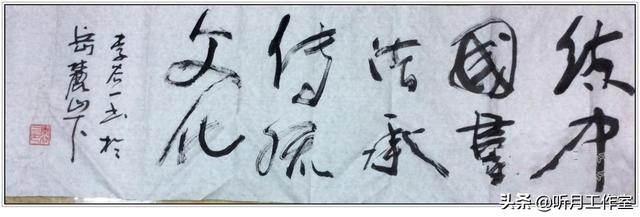 中
國書
法承
傳統
文化
李谷一书於
岳麓山下
头条 @听月工作室